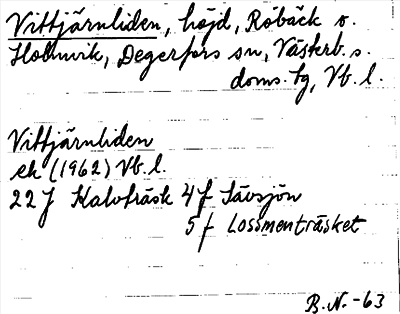 Vittjärnliden, höjd, Röbäck o.
Holmvik, Degerfors sn, Västerb. s.
doms. tg, Vb. l.
Vittjärnliden
ek (1962) Vb. l.
22 J Kalvträsk 4 f Sävsjön
5 f Lossmenträsket
B. N. -63